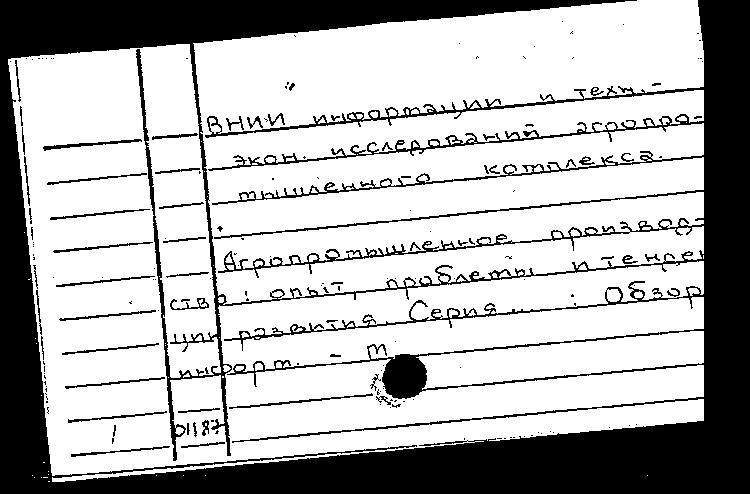 ВНИИ информации и техн.-
экон. исследований агропро-
мышленного комплекса.
Агропромышленное производ-
ство: опыт, проблемы и тенден
ции развития. Серия... : Обзор
информ. - М
1 01187